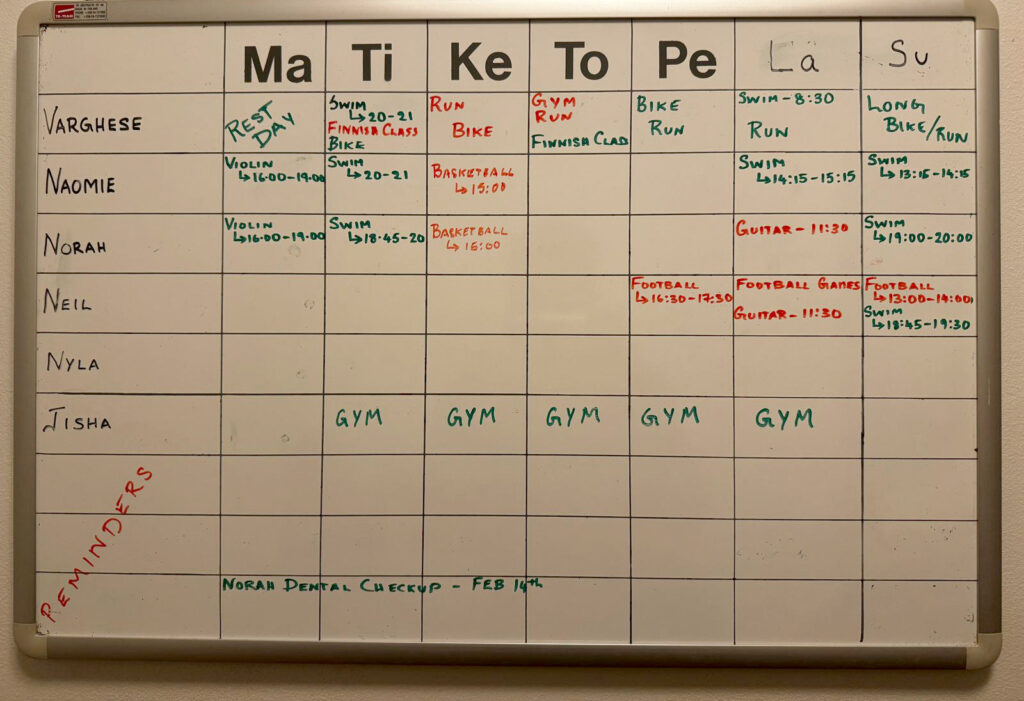 Ma Ti Ke To Pe La Su
VARGHESE
REST DAY
SWIM
↳20-21
FINNISH CLASS
BIKE
RUN
BIKE
GYM
RUN
FINNISH CLAS
BIKE
RUN
SWIM-8:30
RUN
LONG
BIKE/RUN
NAOMIE
VIOLIN
↳16.00-19.00
SWIM
↳20-21
BASKETBALL
↳15:00
SWIM
↳14:15-15:15
SWIM
↳13:15-14:15
NORAH
VIOLIN
↳16.00-19.00
SWIM
↳18.45-20
BASKETBALL
↳16:00
GUITAR-11:30
SWIM
↳19:00-20:00
NEIL
FOOTBALL
↳16:30-17:30
FOOTBALL GAMES
GUITAR-11:30
FOOTBALL
↳13:00-14:00
SWIM
↳18:45-19:30
NYLA
JISHA
GYM GYM GYM GYM GYM
REMINDERS
NORAH DENTAL CHECKUP - FEB 14th